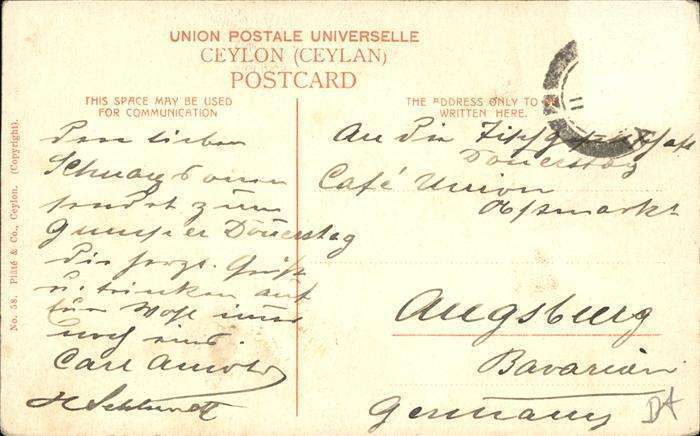 UNION POSTALE UNIVERSELLE
CEYLON (CEYLAN)
POSTCARD
THIS SPACE MAY BE USED
FOR COMMUNICATION
THE ADDRESS ONLY TO BE
WRITTEN HERE.
No. 58. Plâté & Co., Ceylon. (Copyright).
11
lieben
sendet zum
Donerstag
die herzl. Grüße
u. trinken auf
Ihr Wohl
noch eins.
Carl
An die
Donerstag
Café Union
Obstmarkt
Augsburg
Bavarian
Germany